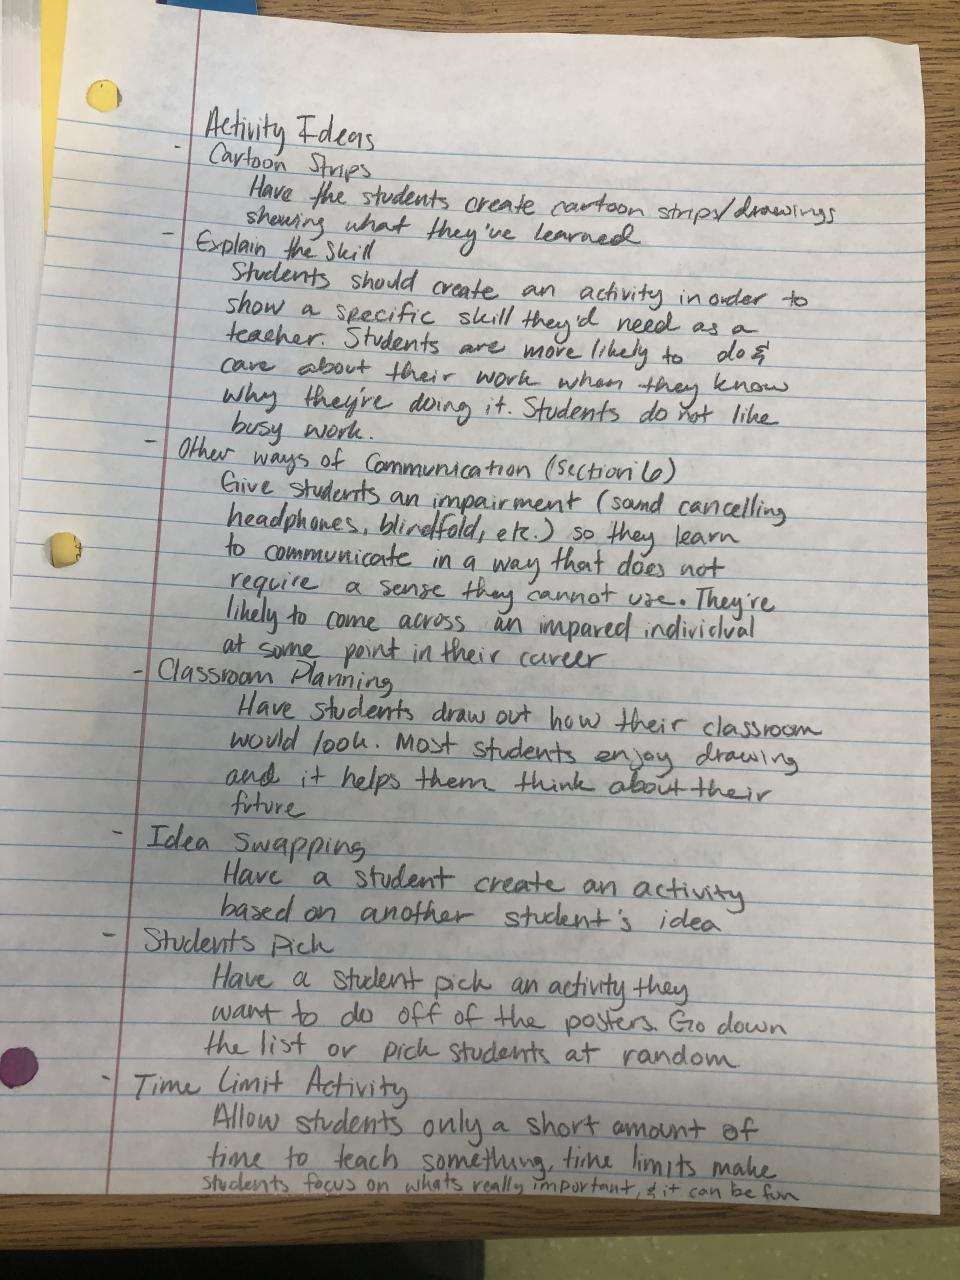 Activity Ideas
- Cartoon Strips
Have the students create cartoon strips/drawings
showing what they've learned
- Explain the Skill
Students should create an activity in order to
show a specific skill they'd need as a
teacher. Students are more likely to do &
care about their work when they know
why they're doing it. Students do not like
busy work.
- Other ways of Communication (section 6)
Give students an impairment (sound cancelling
headphones, blindfold, etc.) so they learn
to communicate in a way that does not
require a sense they cannot use. They're
likely to come across an impared individual
at some point in their career
- Classroom Planning
Have students draw out how their classroom
would look. Most students enjoy drawing
and it helps them think about their
future
- Idea Swapping
Have a student create an activity
based on another student's idea
- Students Pick
Have a student pick an activity they
want to do off of the posters. Go down
the list or pick students at random
- Time Limit Activity
Allow students only a short amount of
time to teach something, time limits make
students focus on whats really important, & it can be fun